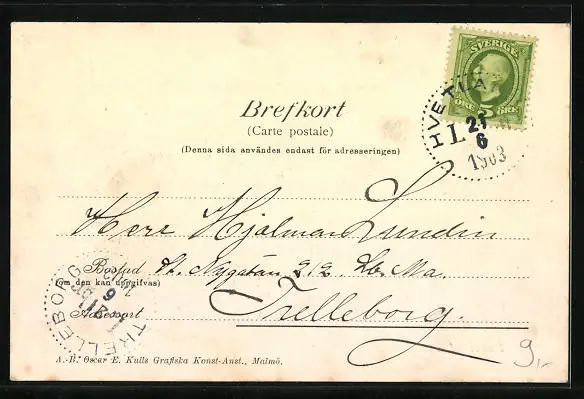 SVERIGE
ÖRE 5 ÖRE
HVETLA
L 21
6
1903
Brefkort
(Carte postale)
(Denna sida användes endast för adresseringen)
Herr Hjalmar Lundin
Bostad
(om den kan uppgifvas)
Adressort Trelleborg.
TRELLEBORG
A.-B. Oscar E. Kulls Grafiska Konst-Anst., Malmö.
9,-